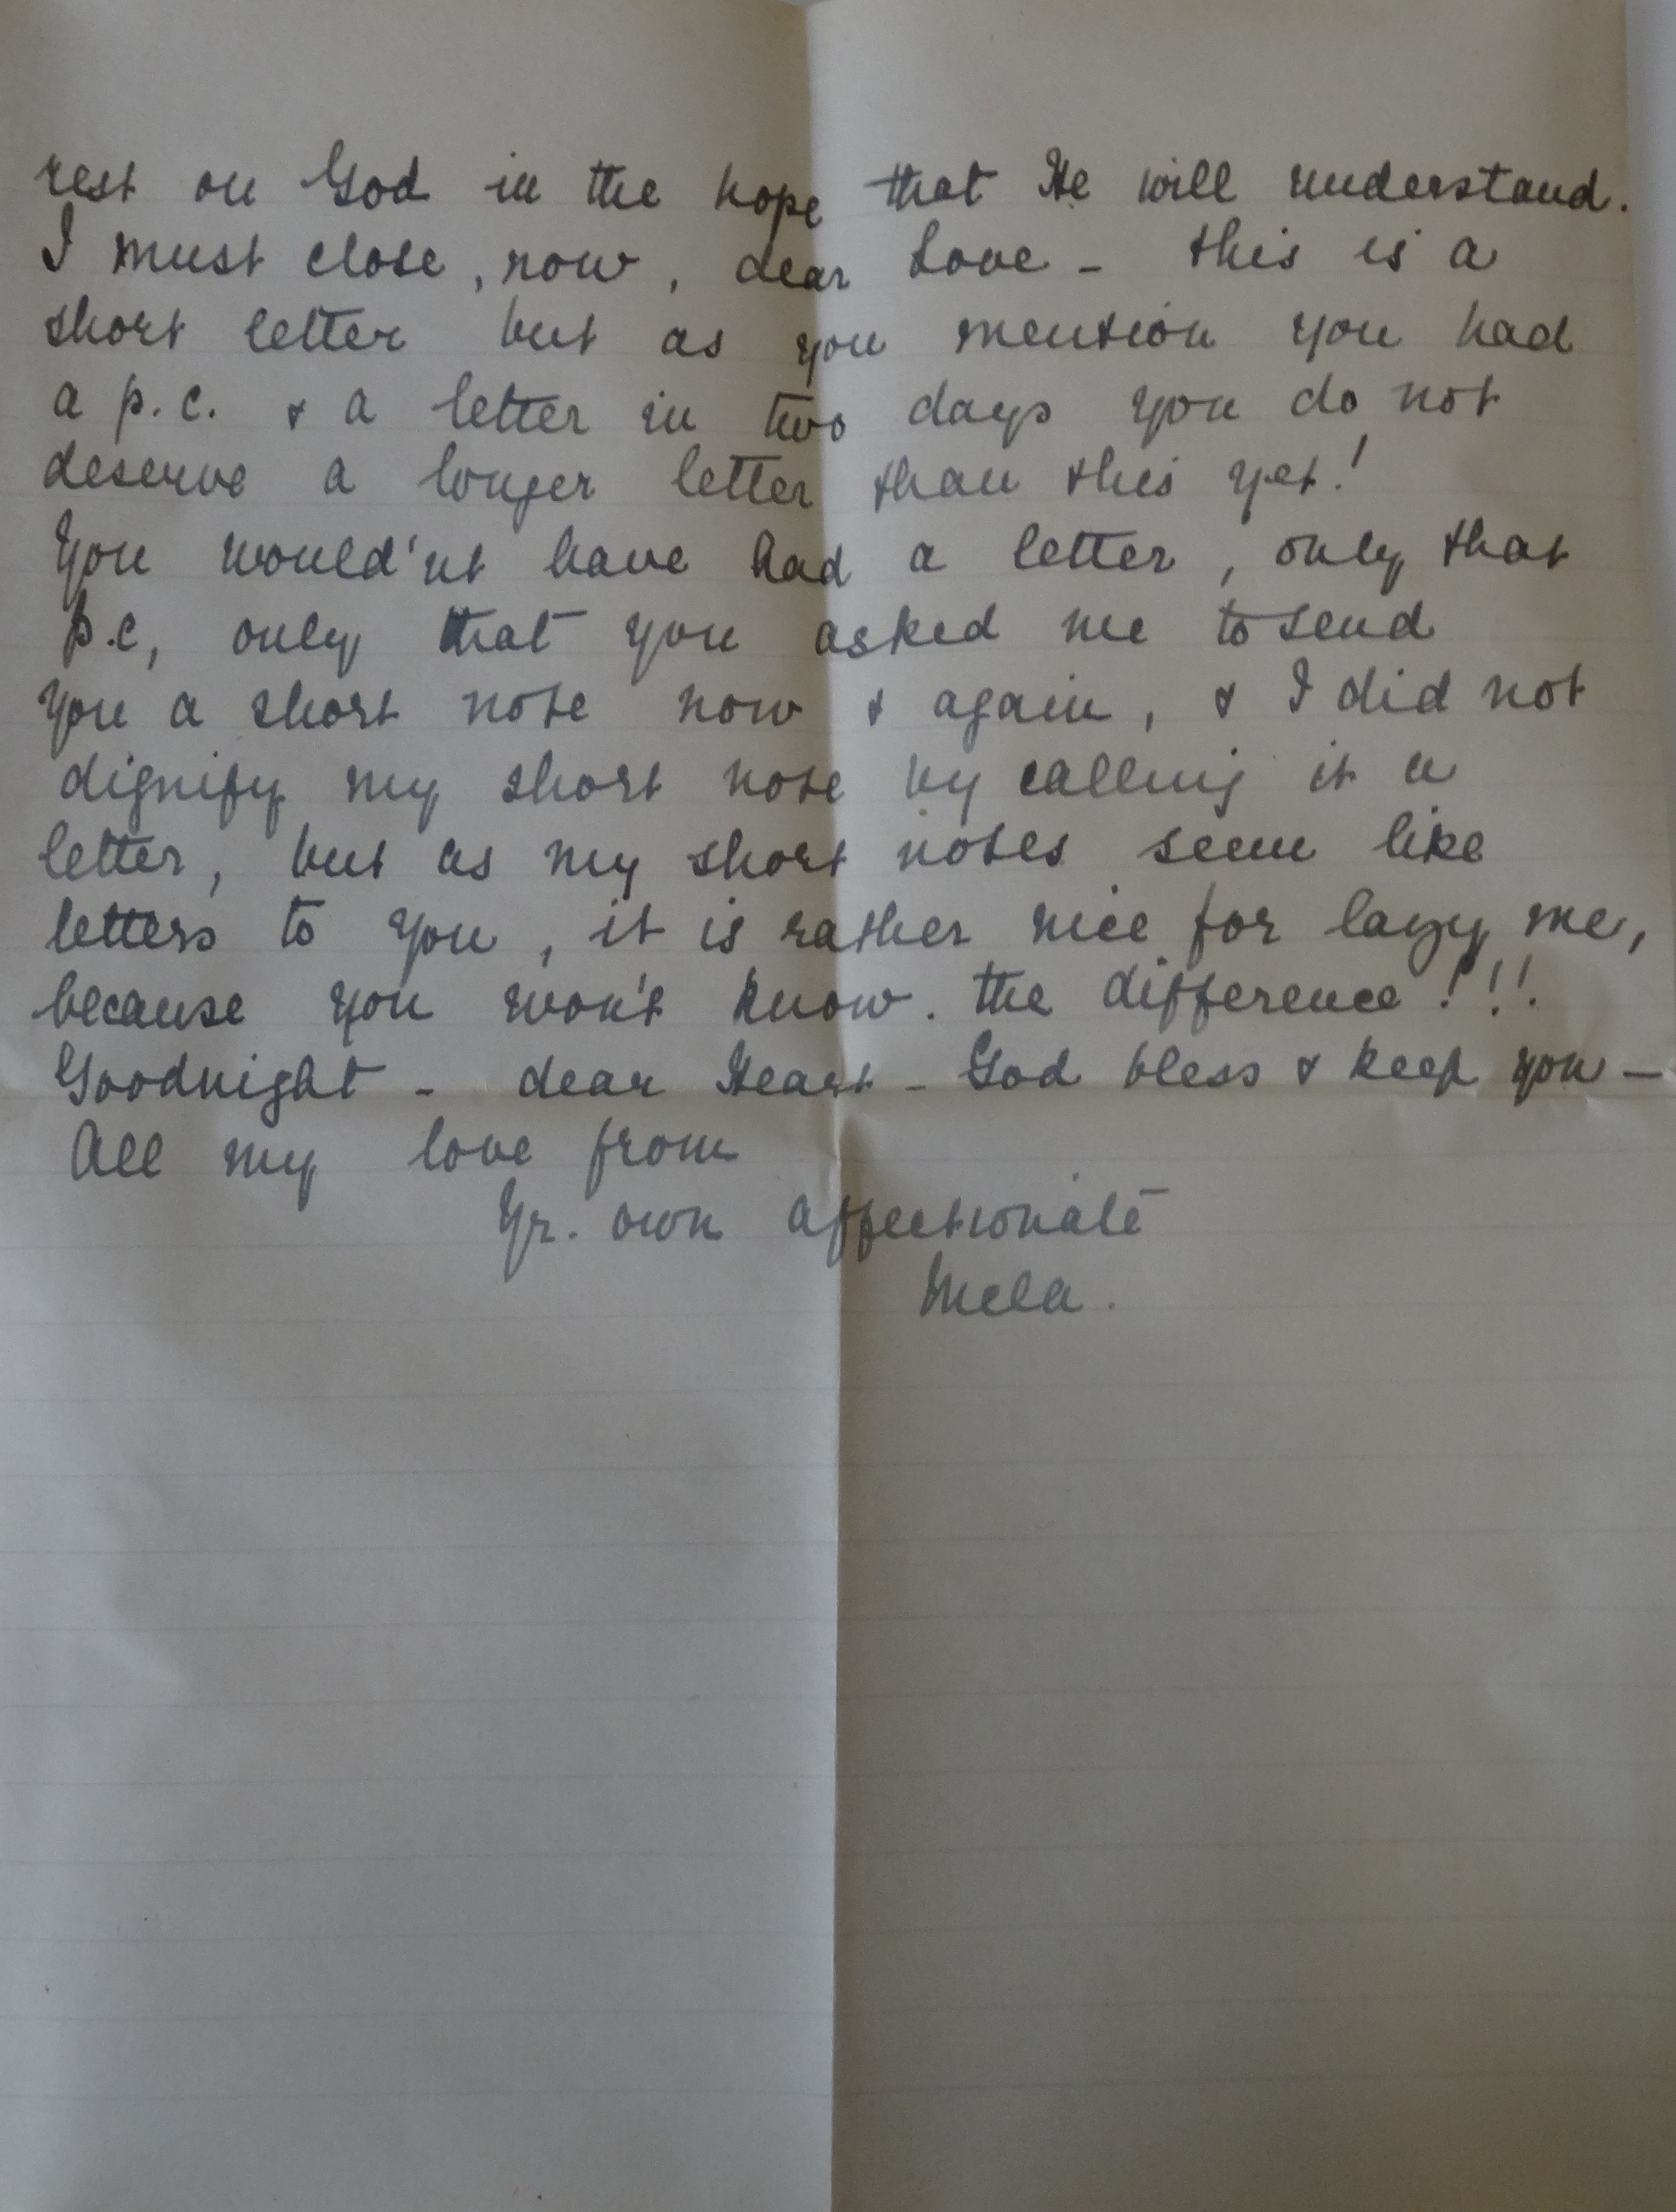 rest on God in the hope that He will understand.
I must close, now, dear Love - this is a
short letter but as you mention you had
a p.c. & a letter in two days you do not
deserve a longer letter than this yet!
You would'nt have had a letter, only that
p.c, only that you asked me to send
you a short note now & again, & I did not
dignify my short note by calling it a
letter, but as my short notes seem like
letters to you, it is rather nice for lazy me,
because you won't know. the difference!!!
Goodnight - dear Heart - God bless & keep you -
All my love from
Yr. own affectionate
Mela.